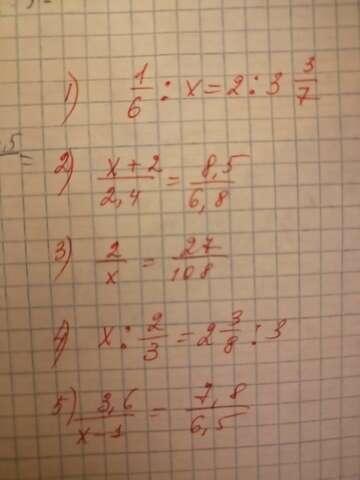 1) 1/6 : x = 2 : 3 3/7
5
=
2) x+2/2,4 = 8,5/6,8
3) 2/x = 27/108
4) x : 2/3 = 2 3/8 : 3
5) 3,6/x-1 = 7,8/6,5